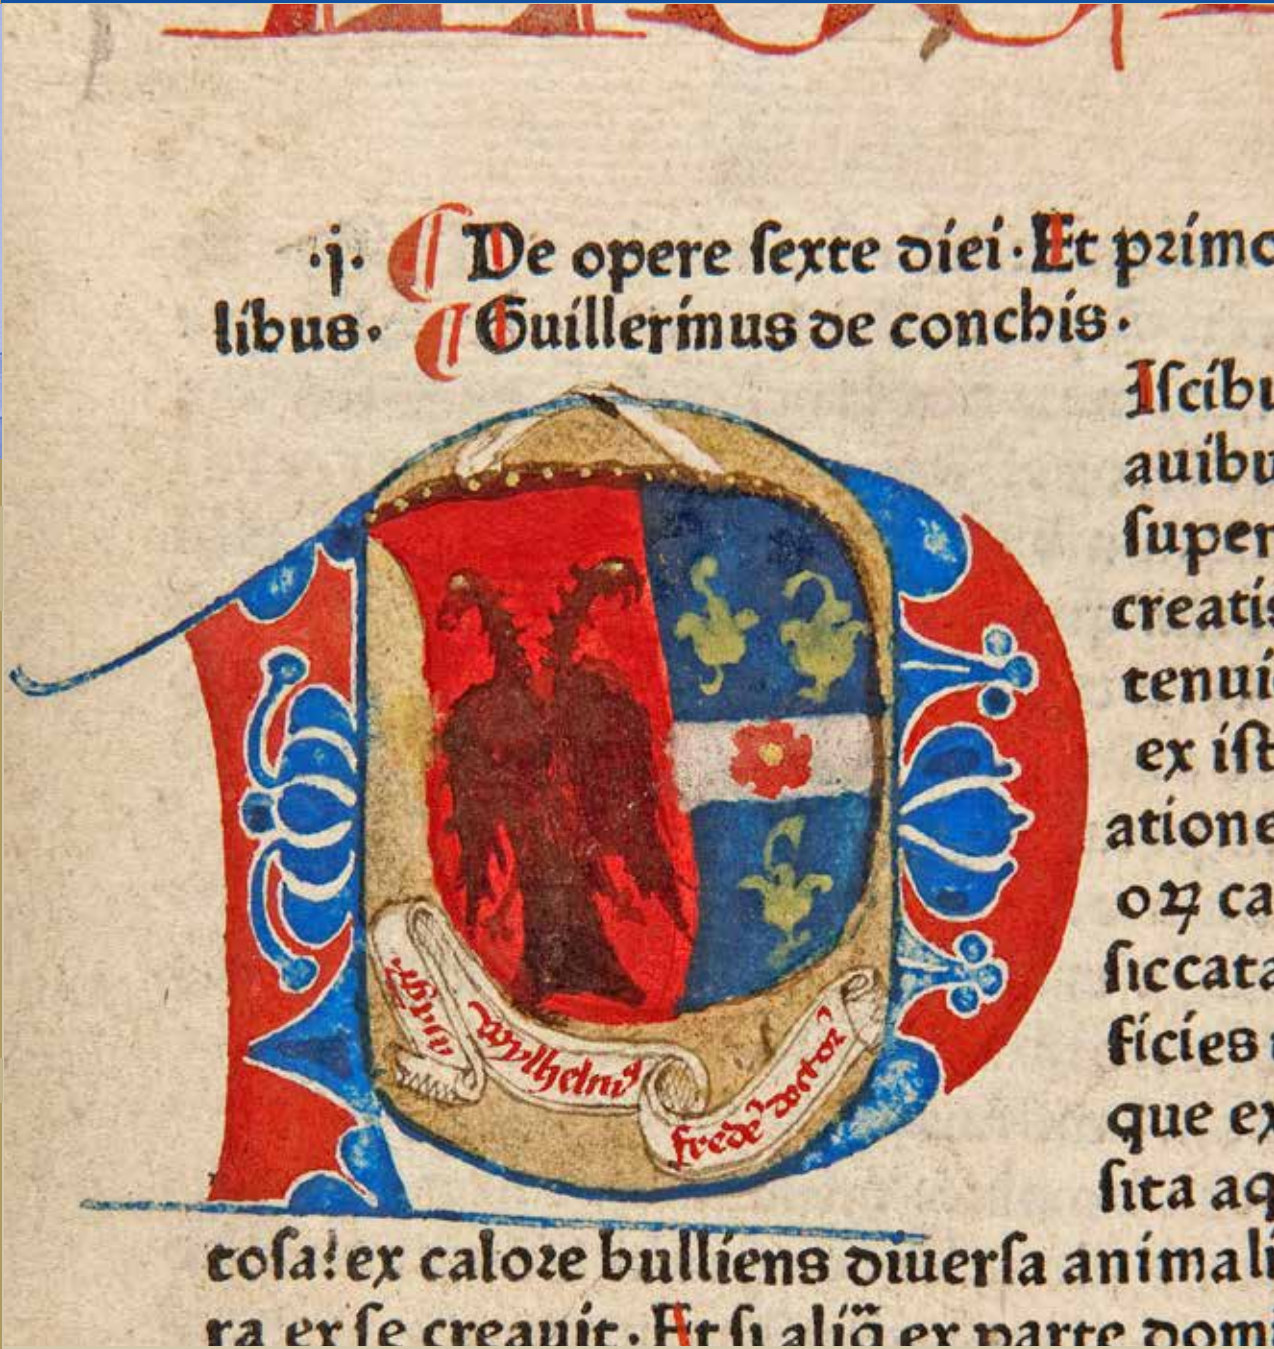 .j. ¶ De opere ſexte diei. Et primo
libus. ¶ Guillerinus de conchis.
Piſcibu
auibu
ſuper
creatis
tenui
ex iſt
atione
oꝝ ca
ſiccata
ficies
que ex
ſita aq
wylhelmꝰ
frede' doctor'
toſa: ex calore bulliens diuerſa animali
ra ex ſe creauit. Et ſi aliq̄ ex parte domi